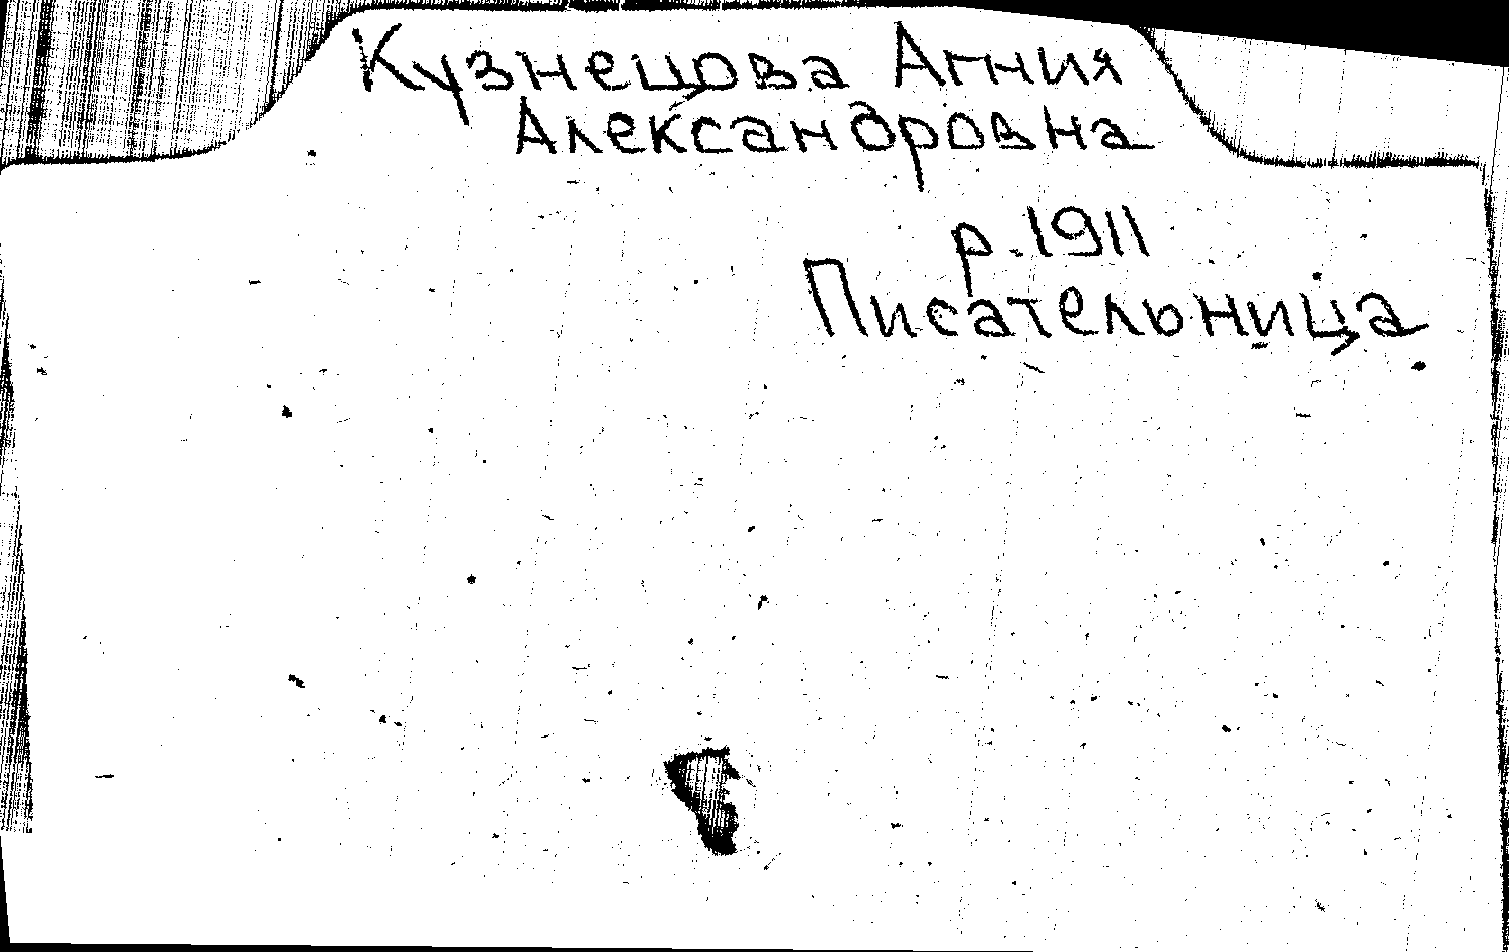 Кузнецова Агния
Александровна
р. 1911
Писательница